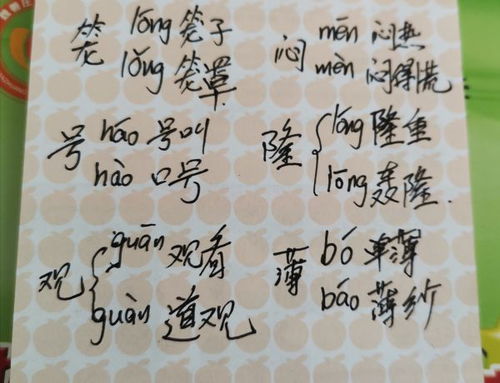 笼 lóng 笼子
lǒng 笼罩
闷 mēn 闷热
mèn 闷得慌
号 háo 号叫
hào 口号
隆 lóng 隆重
lōng 轰隆.
观 guān 观看
guàn 道观
薄 bó 单薄
báo 薄纱